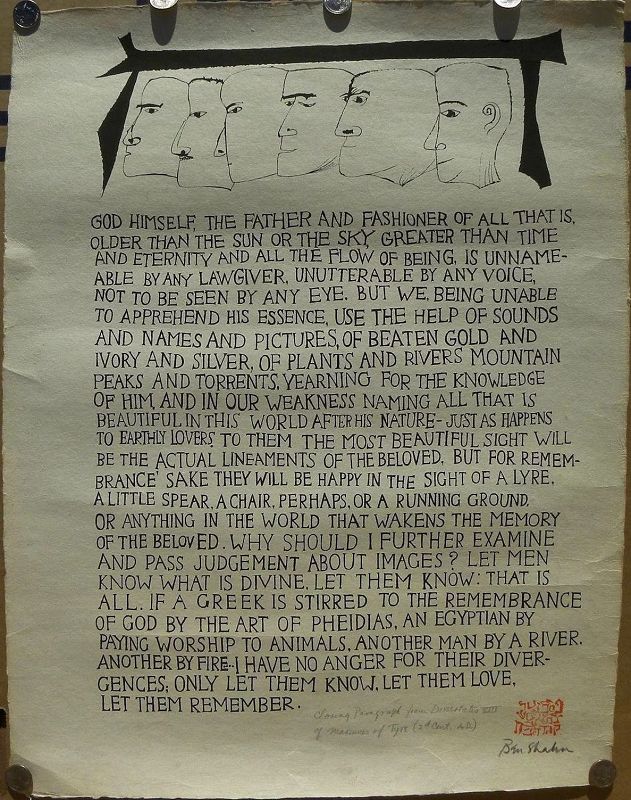 GOD HIMSELF, THE FATHER AND FASHIONER OF ALL THAT IS,
OLDER THAN THE SUN OR THE SKY GREATER THAN TIME
AND ETERNITY AND ALL THE FLOW OF BEING, IS UNNAME-
ABLE BY ANY LAWGIVER, UNUTTERABLE BY ANY VOICE,
NOT TO BE SEEN BY ANY EYE. BUT WE, BEING UNABLE
TO APPREHEND HIS ESSENCE, USE THE HELP OF SOUNDS
AND NAMES AND PICTURES, OF BEATEN GOLD AND
IVORY AND SILVER, OF PLANTS AND RIVERS MOUNTAIN
PEAKS AND TORRENTS, YEARNING FOR THE KNOWLEDGE
OF HIM, AND IN OUR WEAKNESS NAMING ALL THAT IS
BEAUTIFUL IN THIS WORLD AFTER HIS NATURE- JUST AS HAPPENS
TO EARTHLY LOVERS TO THEM THE MOST BEAUTIFUL SIGHT WILL
BE THE ACTUAL LINEAMENTS OF THE BELOVED, BUT FOR REMEM-
BRANCE' SAKE THEY WILL BE HAPPY IN THE SIGHT OF A LYRE,
A LITTLE SPEAR, A CHAIR, PERHAPS, OR A RUNNING GROUND,
OR ANYTHING IN THE WORLD THAT WAKENS THE MEMORY
OF THE BELOVED. WHY SHOULD I FURTHER EXAMINE
AND PASS JUDGEMENT ABOUT IMAGES? LET MEN
KNOW WHAT IS DIVINE, LET THEM KNOW: THAT IS
ALL. IF A GREEK IS STIRRED TO THE REMEMBRANCE
OF GOD BY THE ART OF PHEIDIAS, AN EGYPTIAN BY
PAYING WORSHIP TO ANIMALS, ANOTHER MAN BY A RIVER,
ANOTHER BY FIRE--I HAVE NO ANGER FOR THEIR DIVER-
GENCES; ONLY LET THEM KNOW, LET THEM LOVE,
LET THEM REMEMBER.
Closing Paragraph from Dissertatio VIII
of Maximus of Tyre (2nd Cent. AD)
Ben Shahn